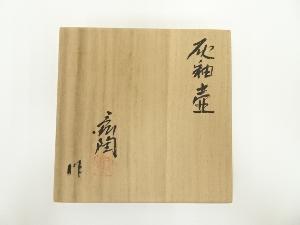 灰釉壷
陶
作